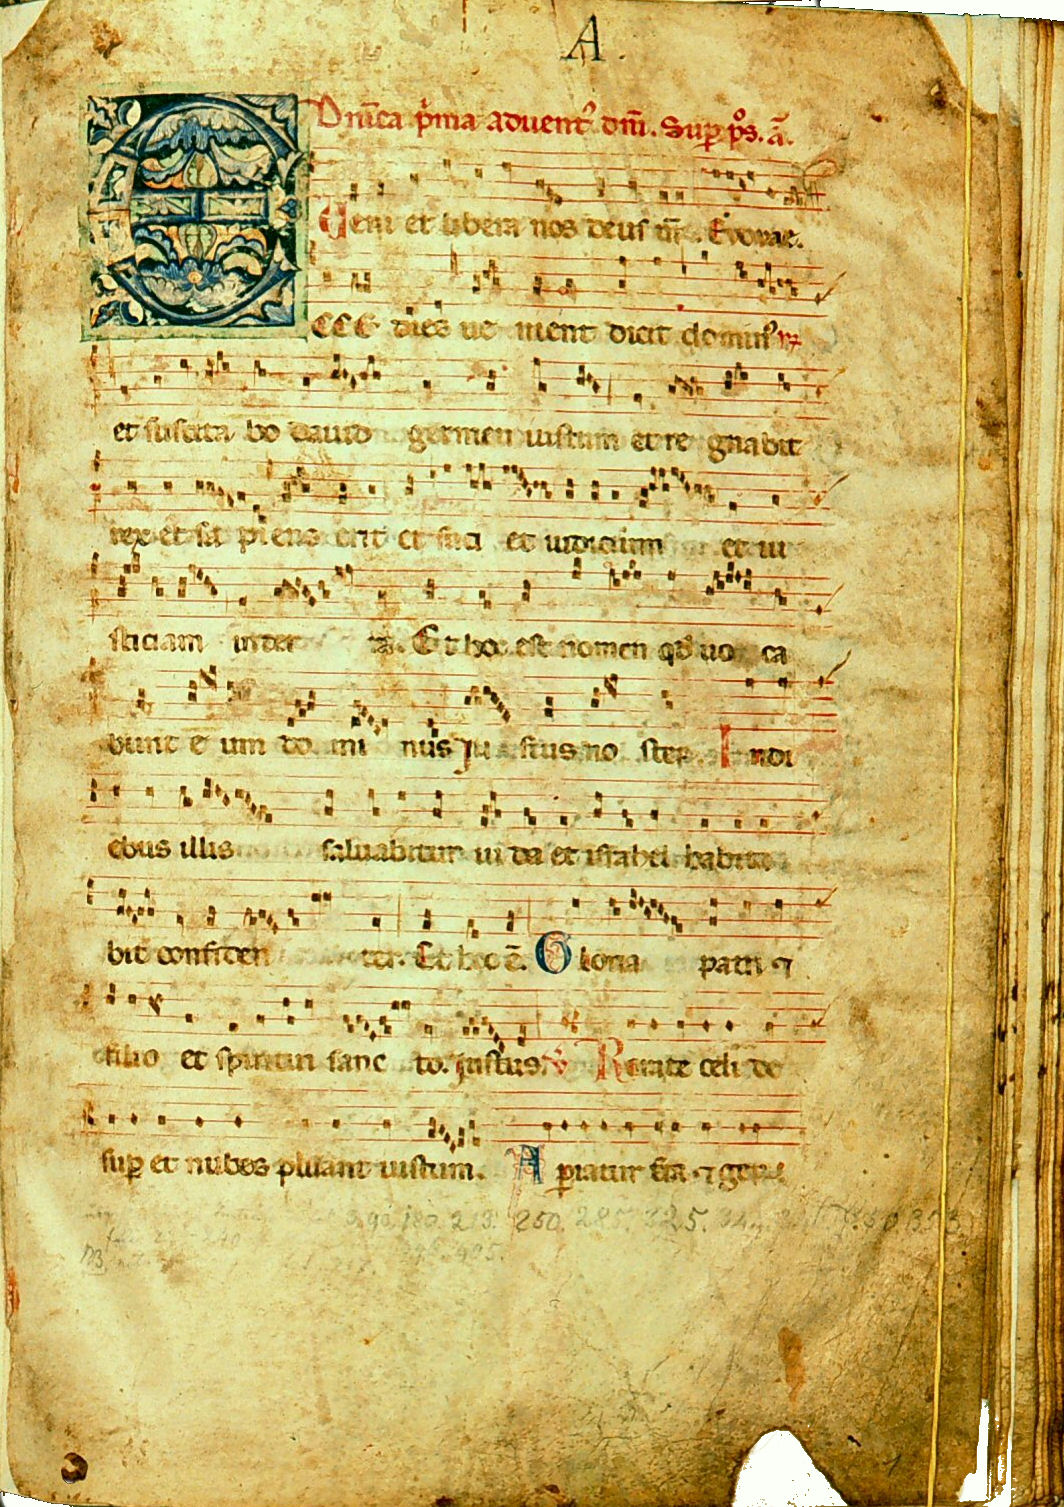 A.
Dnica p̃ma aduent᾽ dñi. Sup p̃s. ã.
Veni et libera nos deus nr̃. Evovae.
ECCE dies ue nient dicit domin᾽
et suscita bo dauid germen iustum et re gnabit
rex et sa piens erit et faci et iudicium et iu
sticiam in ter ra. Et hoc est nomen qd̃ uo ca
bunt e um do mi nus Ju stus no ster. Indi
ebus illis saluabitur iu da et israhel habita
bit confiden ter. Et hoc ẽ. Gloria patri ⁊
filio et spiritui sanc to. Justus. Rorate celi de
sup et nubes pluant iustum. Aperiatur t̃ra ⁊ ger
180. 213. 250. 285. 325.